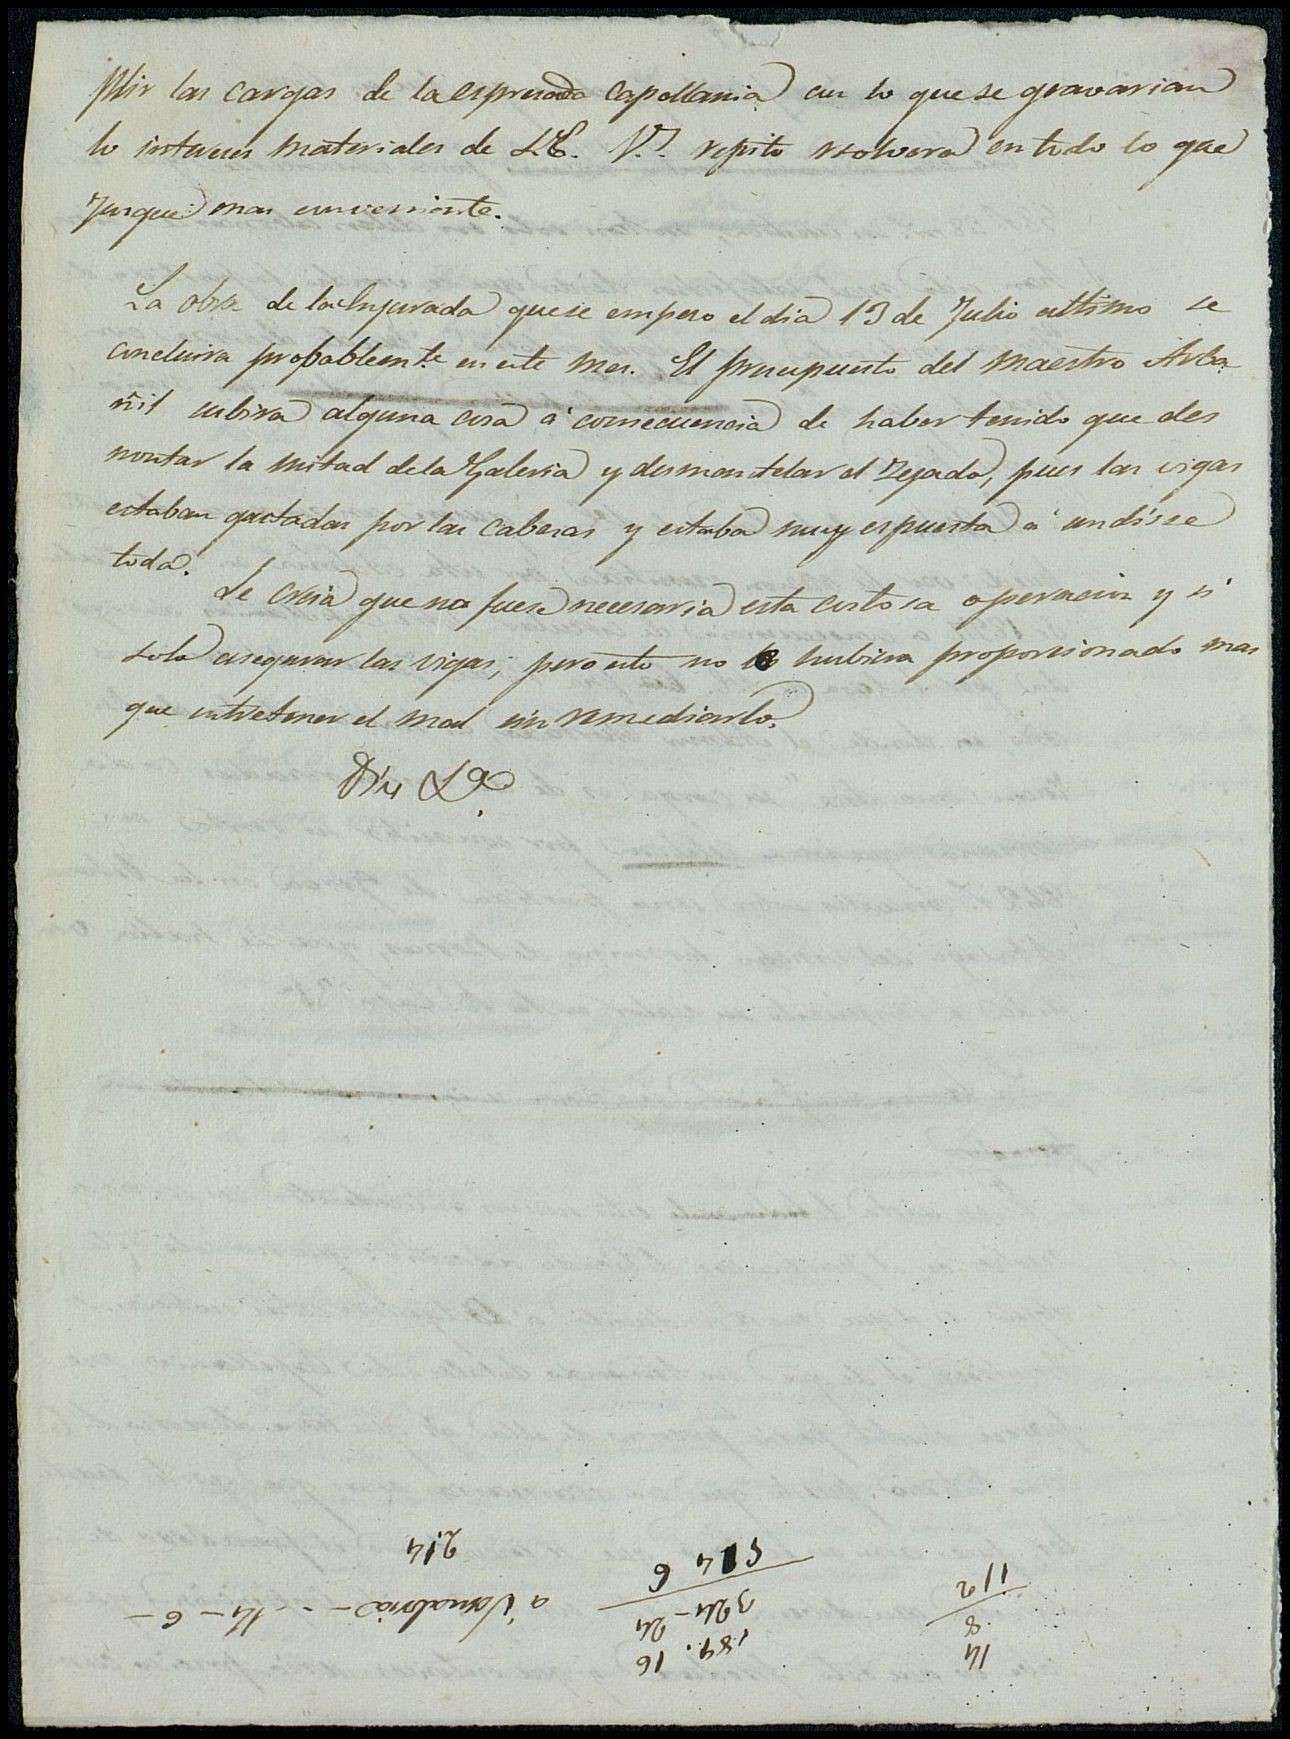 plir las cargas de la espresada Capellania en lo que se gravarian
lo intereses materiales de S.E. V.I. repito resolvera en todo lo que
Jusgue mas conveniente.
La obra de la Injurada que se empeso el dia 13 de Julio ultimo se
concluira probablemte. en este mes. El presupuesto del Maestro Alba-
ñil subira alguna cosa á consecuencia de haber tenido que des
montar la mitad de la Galeria y desmantelar el Tejado, pues las vigas
estaban gastadas por las cabesas y estaba muy espuesta á undirse
toda.
Se creia que no fuese necesaria esta costosa operacion y si
solo asegurar las vigas; pero esto no hubiera proporcionado mas
que entretener el mal sin remediarlo.
Dios
14
8
112
189. 16
324 - 24
514 6
a - - - 14 - 6 -
214